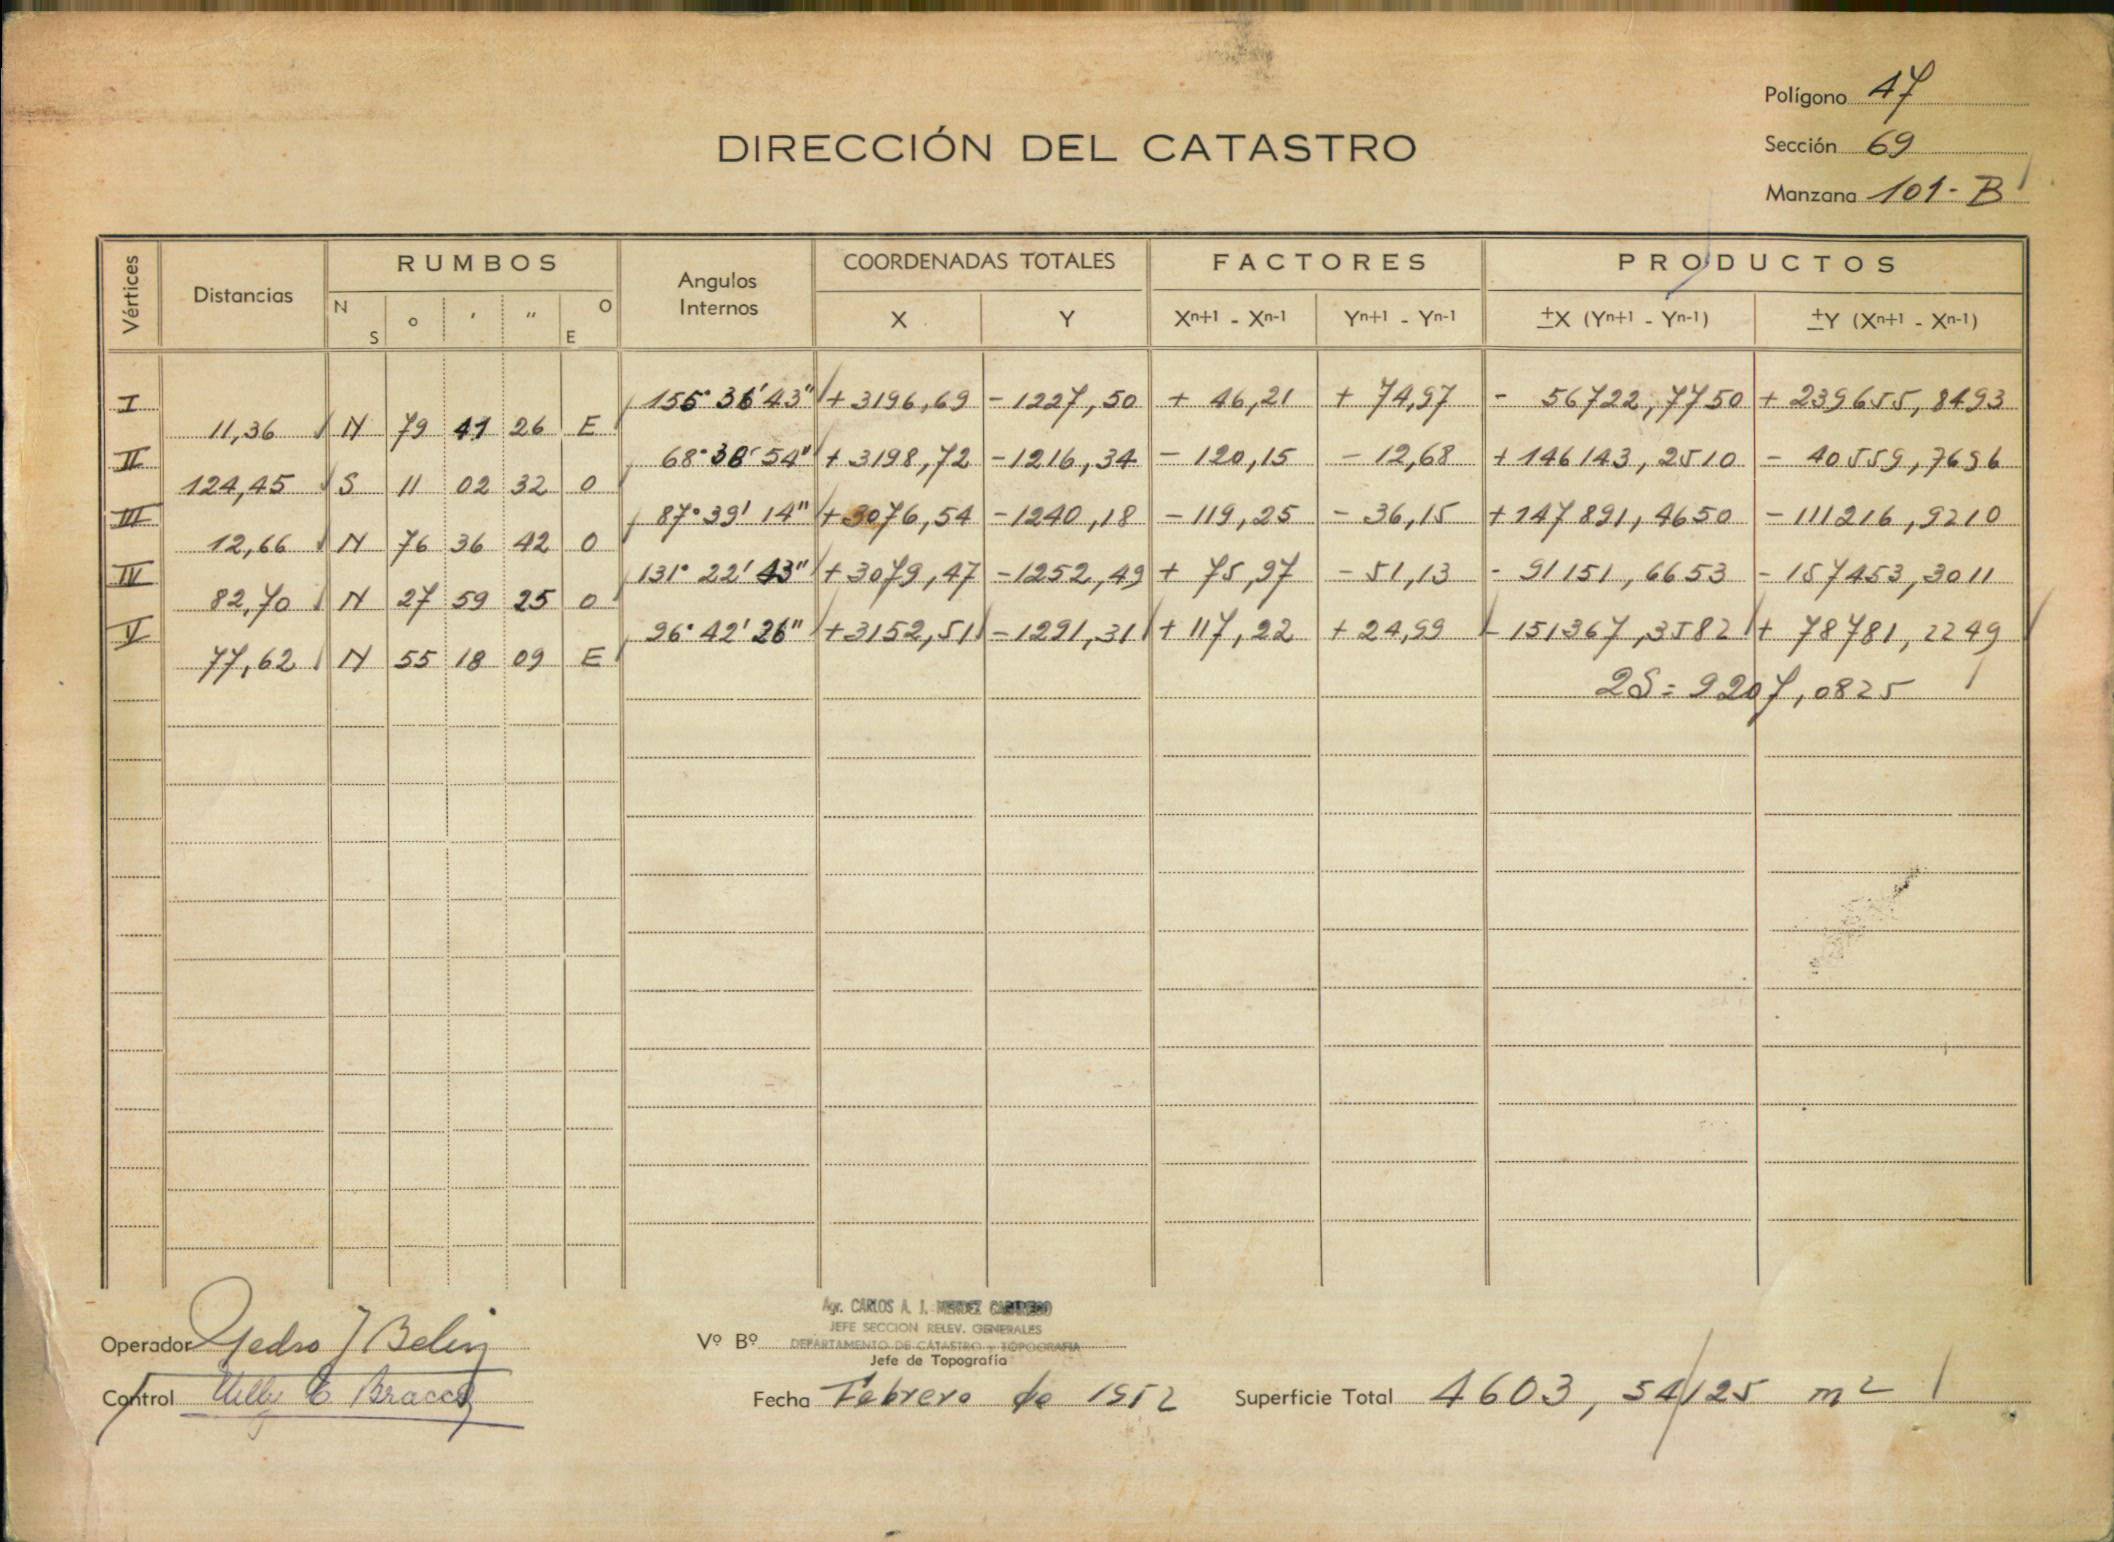 Polígono 47
DIRECCIÓN DEL CATASTRO
Sección 69
Manzana 101-B
Vértices Distancias RUMBOS Angulos Internos COORDENADAS TOTALES FACTORES PRODUCTOS
N S ° ' " O E X Y Xn+1 - Xn-1 Yn+1 - Yn-1 ±X (Yn+1 - Yn-1) ±Y (Xn+1 - Xn-1)
I 155° 36' 43" +3196,69 -1227,50 + 46,21 + 74,97 - 56722,7750 + 239655,8493
11,36 N 79 41 26 E
II 68° 38' 54" + 3198,72 -1216,34 - 120,15 - 12,68 +146143,2510 - 40559,7696
124,45 S 11 02 32 O
III 87° 39' 14" +3076,54 -1240,18 -119,25 - 36,15 +147891,4650 -111216,9210
12,66 N 76 36 42 O
IV 131° 22' 43" +3079,47 -1252,49 + 75,97 - 51,13 - 95151,6653 - 157453,3011
82,70 N 27 59 25 O
V 96° 42' 26" +3152,51 -1291,31 + 117,22 + 24,99 - 151367,3582 + 78781,2249
77,62 N 55 18 09 E
2S = 9207,0825
Agr. CARLOS A. J. MENDEZ
JEFE SECCION RELEV. GENERALES
Operador Pedro J Belin Vº Bº DEPARTAMENTO DE CATASTRO y TOPOGRAFIA
Jefe de Topografía
Control Nelly E Bracco Fecha Febrero de 1952 Superficie Total 4603,54125 m²